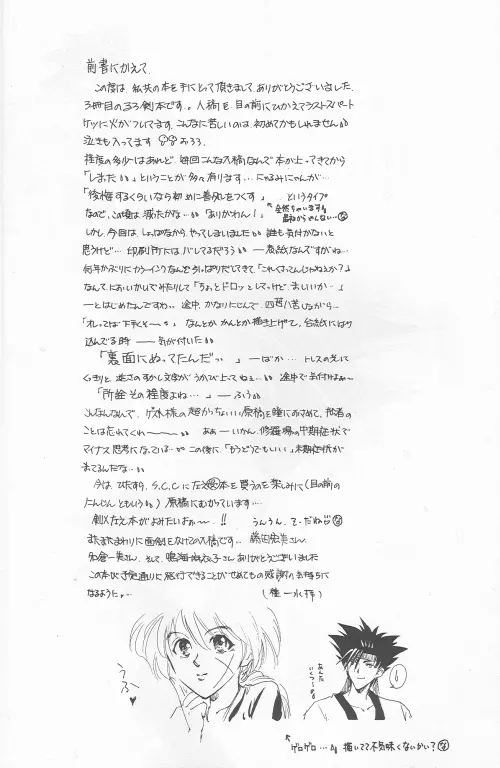 前書にかえて
この度は、私共の本を手にとって頂きまして、ありがとうございました。
3冊目のるろ剣本です。入稿を目の前にひかえてラストスパート
ケツに火がついてます。こんなに苦しいのは初めてかもしれません
泣きも入ってます おろろ。
程度の多少はあれど、毎回こんな入稿なんで本が上ってきてから
「しまった」ということが多々有ります…
「後悔するくらいなら初めに善処をつくす」、というタイプ
なので、この頃は減ったかな…「ありがわん!」
全然ちゃいます
しかし、今回は、しょっぱなから、やってしまいました 誰も気付かないと
思うけど… 印刷所にはバレてるだろう ― 表紙なんですがね…
何年かぶりにカラーインクなんぞひっぱりだしてきて「これくさってんじゃねぇか?」
なんて、においかいでみたりして「ちょっとドロッとしてっけど、まいいか…」
―とはじめたんですわ。途中、かなりにじんで、四苦八苦しながら…
「オレってば下手くそー」なんとかかんとか描き上げて、台紙にはり
込んでる時 ― 気が付いた
「裏面にぬってたんだっ」―ばか… トレスの光にて
くっきりと逆さのすかし文字がうかび上ってねぇ… 途中で気付けよぉ〜
「所詮その程度よね…」― ふっ
こんなんなんで、ゲスト様の超かっちょいい原稿を瞳におさめて、拙者の
ことは忘れてくれ〜 ああーいかん、修羅場の中期症状で
マイナス思考になっている… この後に、「もうどうでもいい」末期症状が
まってるんだな…
今は、ひたすら、S.C.Cに左之本を買うのを楽しみに(目の前の
にんじんともいう)原稿にむかっています…
剣×左之本がよみたいよぉ〜!! うんうん、て・だね
またまたまわりに面倒をかけての入稿です。藤田宏美さん、
名倉一美さん、そして、鳴海麻衣子さんありがとうございました
この本が予定通りに発行できることがせめてもの感謝の気持ちに
なるように。
うふっ
あんた いくつ…
ゲロゲロ… 描いてて不気味くないかい?